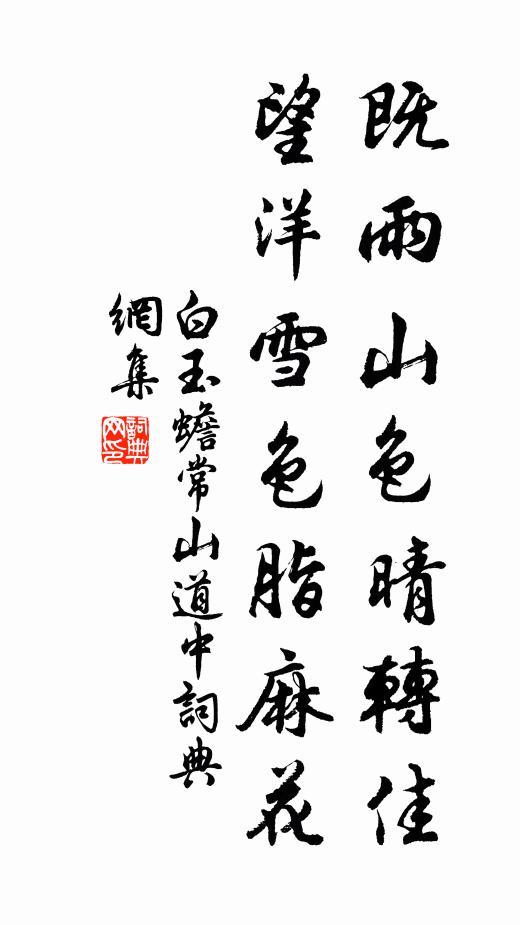 既雨山色晴轉佳
望洋雪色脂麻花
白玉蟾常山道中詞典
網集
詞典
网印